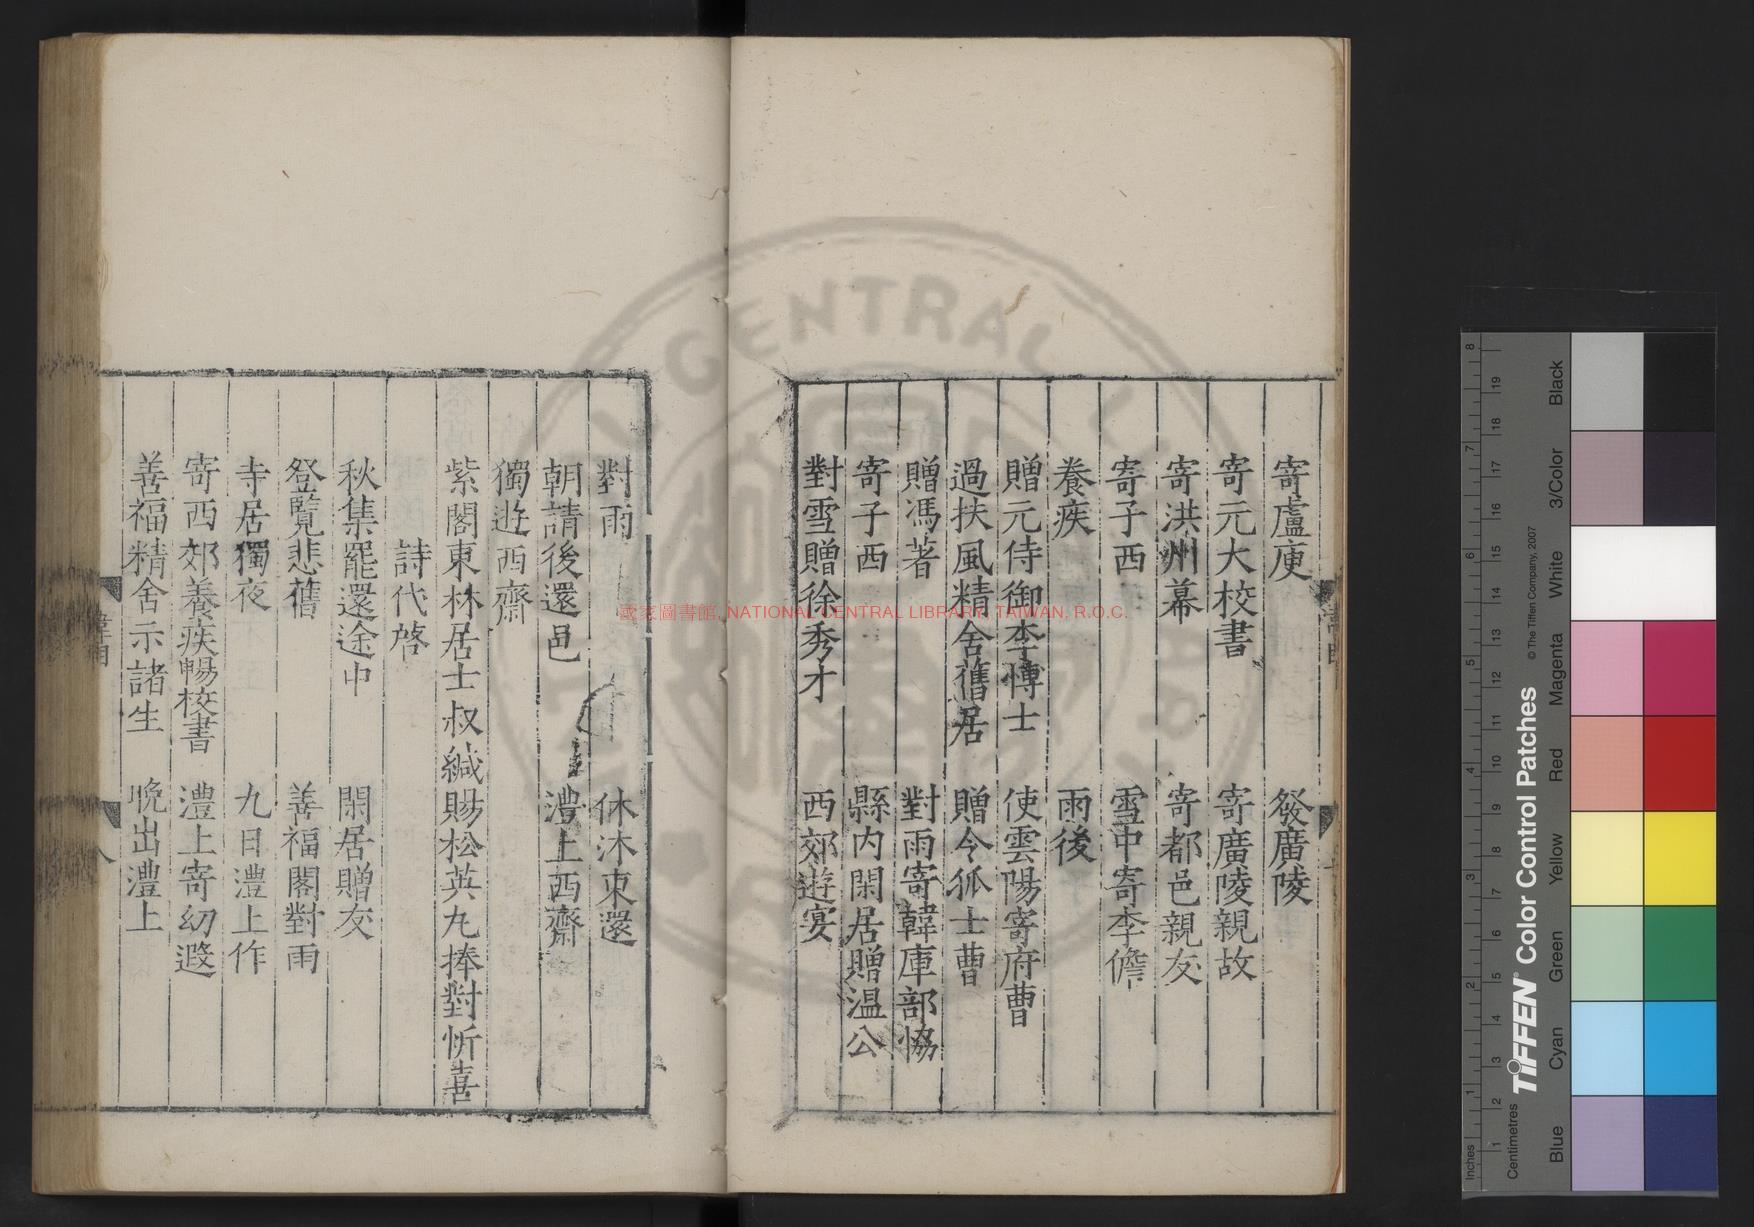 寄盧庾　發廣陵
寄元大校書　寄廣陵親故
寄洪州幕　寄都邑親友
寄子西　雪中寄李儋
養疾　雨後
贈元侍御李博士　使雲陽寄府曹
過扶風精舍舊居　贈令狐士曹
贈馮著　對雨寄韓庫部協
寄子西　縣内閑居贈温公
對雪贈徐秀才　西郊遊宴
對雨　休沐東還
朝請後還邑　澧上西齋
獨遊西齋
紫閣東林居士叔緘賜松英丸捧對忻喜
詩代答
秋集罷還途中　閑居贈友
登覽悲舊　善福閣對雨
寺居獨夜　九日澧上作
寄西郊養疾暢校書　澧上寄幼遐
善福精舍示諸生　晚出澧上
八
國家圖書館, NATIONAL CENTRAL LIBRARY, TAIWAN, R.O.C.
CENTRAL LI
TIFFEN Color Control Patches
© The Tiffen Company, 2007
Inches
1 2 3 4 5 6 7 8
Centimetres
1 2 3 4 5 6 7 8 9 10 11 12 13 14 15 16 17 18 19
Blue
Cyan
Green
Yellow
Red
Magenta
White
3/Color
Black